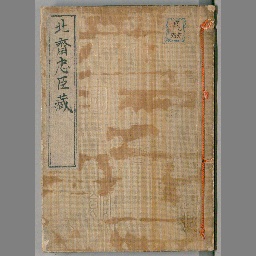 北齋忠臣藏